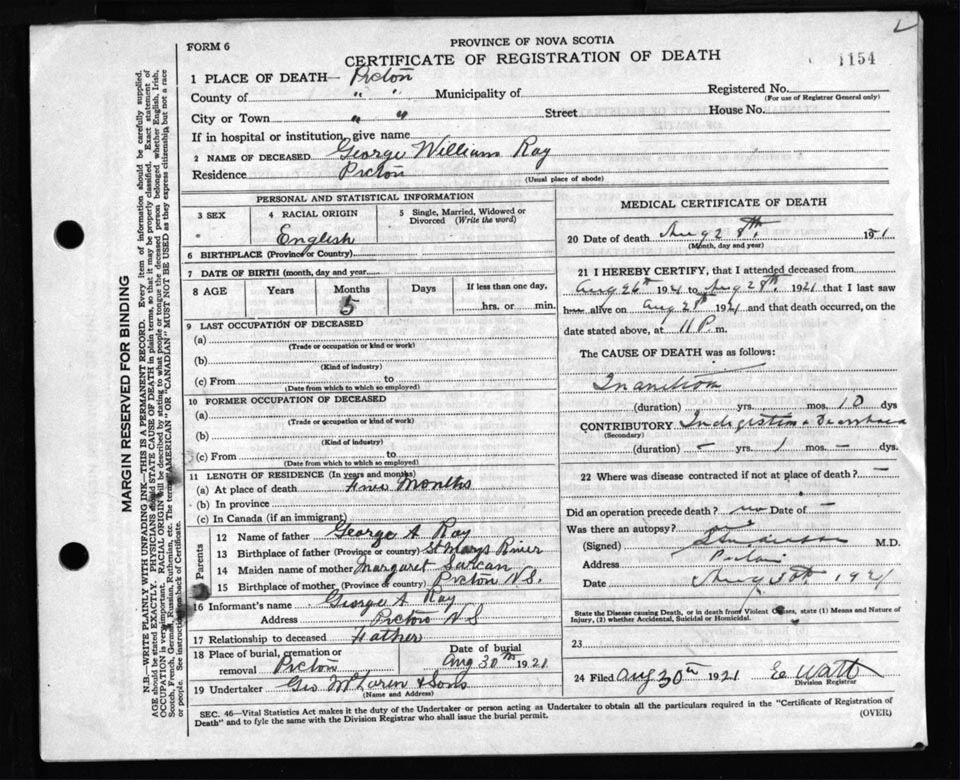 FORM 6
PROVINCE OF NOVA SCOTIA
CERTIFICATE OF REGISTRATION OF DEATH
1154
1 PLACE OF DEATH— Pictou
County of " " Municipality of Registered No.
(For use of Registrar General only)
City or Town " " Street House No.
If in hospital or institution, give name
2 NAME OF DECEASED George William Ray
Residence Pictou
(Usual place of abode)
PERSONAL AND STATISTICAL INFORMATION
3 SEX
4 RACIAL ORIGIN
English
5 Single, Married, Widowed or Divorced (Write the word)
6 BIRTHPLACE (Province or Country)
7 DATE OF BIRTH (month, day and year)
8 AGE Years Months Days If less than one day,
5 hrs. or min.
9 LAST OCCUPATION OF DECEASED
(a)
(Trade or occupation or kind or work)
(b)
(Kind of industry)
(c) From to
(Date from which to which so employed)
10 FORMER OCCUPATION OF DECEASED
(a)
(Trade or occupation or kind of work)
(b)
(Kind of industry)
(c) From to
(Date from which to which so employed)
11 LENGTH OF RESIDENCE (In years and months)
(a) At place of death Five Months
(b) In province
(c) In Canada (if an immigrant)
Parents
12 Name of father George A Ray
13 Birthplace of father (Province or country) St Marys River
14 Maiden name of mother Margaret
15 Birthplace of mother (Province or country) Pictou N S.
16 Informant's name George A Ray
Address Pictou N S
17 Relationship to deceased Father
18 Place of burial, cremation or removal Pictou
Date of burial
Aug 30th 1921
19 Undertaker Geo McLaren & Sons
(Name and Address)
MEDICAL CERTIFICATE OF DEATH
20 Date of death Aug 28th, 1921
(Month, day and year)
21 I HEREBY CERTIFY, that I attended deceased from
Aug 26th 1921 to Aug 28th 1921 that I last saw
him alive on Aug 28th 1921 and that death occurred, on the
date stated above, at 11 P. m.
The CAUSE OF DEATH was as follows:
Inanition
(duration) yrs. mos. 10 dys
CONTRIBUTORY Indigestion & Diarrhoea
(Secondary)
(duration) – yrs. 1 mos. – dys
22 Where was disease contracted if not at place of death? –
Did an operation precede death? no Date of –
Was there an autopsy? no
(Signed) M.D.
Address Pictou
Date Aug 30th 1921
State the Disease causing Death, or in death from Violent Causes, state (1) Means and Nature of
Injury, (2) whether Accidental, Suicidal or Homicidal.
23
24 Filed Aug 30th 1921 E Watt
Division Registrar
SEC. 46—Vital Statistics Act makes it the duty of the Undertaker or person acting as Undertaker to obtain all the particulars required in the "Certificate of Registration of
Death" and to fyle the same with the Division Registrar who shall issue the burial permit.
(OVER)
MARGIN RESERVED FOR BINDING
N.B.—WRITE PLAINLY WITH UNFADING INK—THIS IS A PERMANENT RECORD. Every item of information should be carefully supplied.
AGE should be stated EXACTLY. PHYSICIANS should STATE CAUSE OF DEATH in plain terms, so that it may be properly classified. Exact statement of
OCCUPATION is very important. RACIAL ORIGIN will be described by stating to what people or tongue the deceased person belonged whether English, Irish,
Scotch, French, German, Russian, Ruthenian, etc. The terms "AMERICAN" OR "CANADIAN" MUST NOT BE USED as they express citizenship, but not a race
or people. See instructions on back of Certificate.